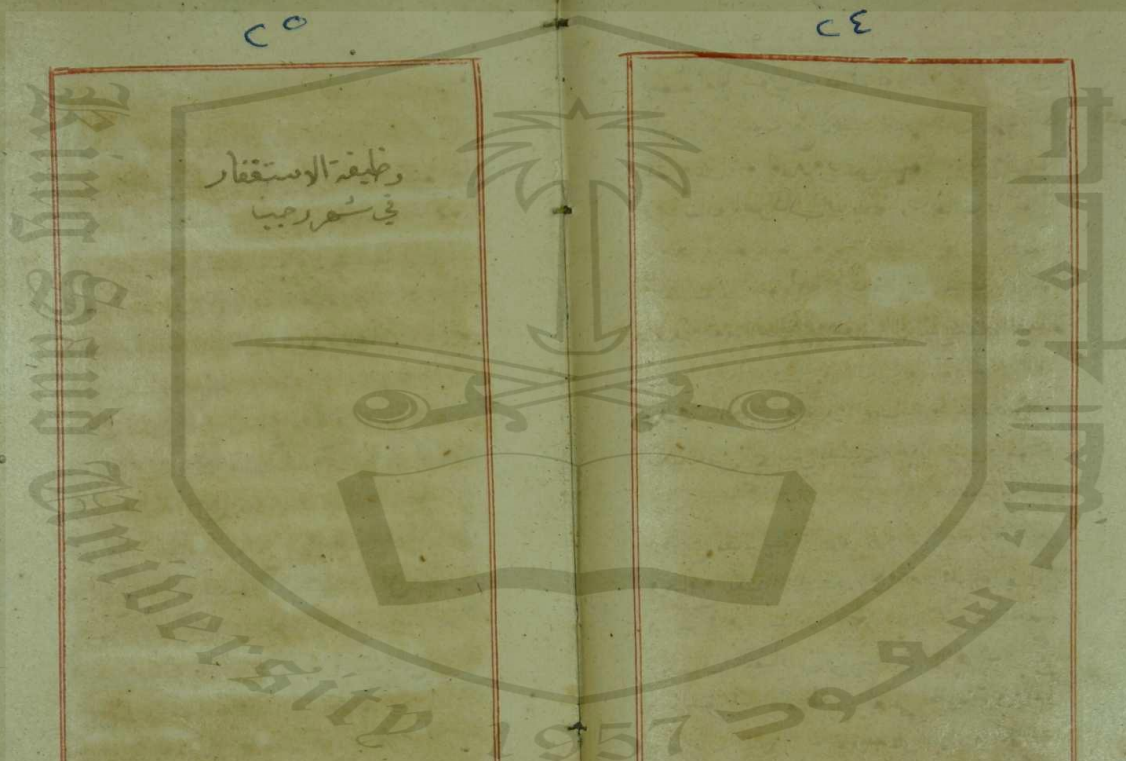 ٢٤
٢٥
وظيفة الاستغفار
في شهر رجب
King Saud University
1957
جامعة الملك سعود